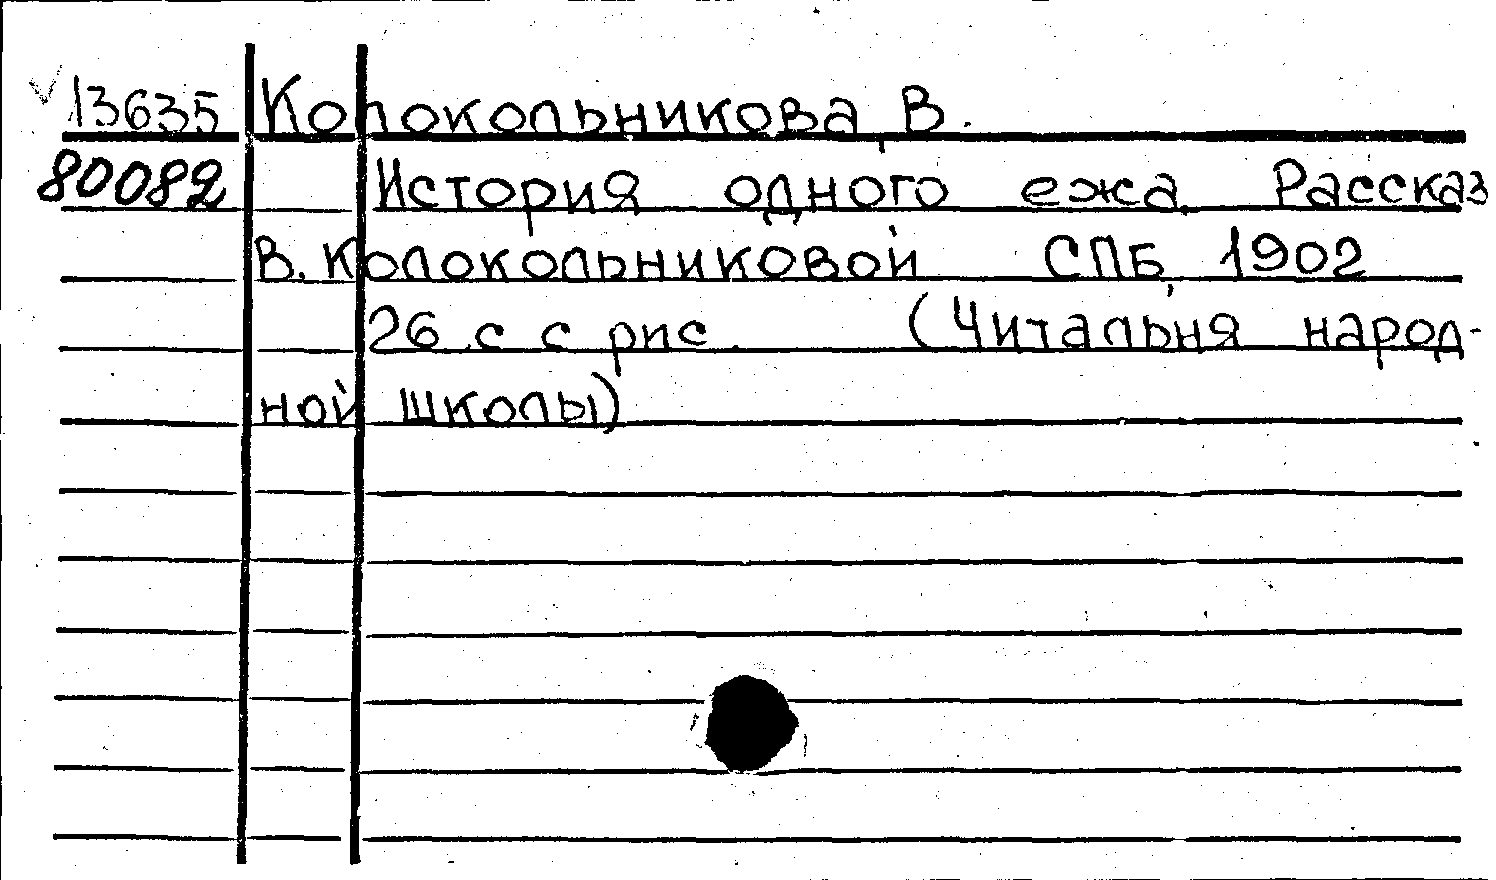 13635 Колокольникова, В.
80082 История одного ежа. Рассказ
В. Колокольниковой СПБ, 1902
26 с с рис. (Читальня народ-
ной школы)